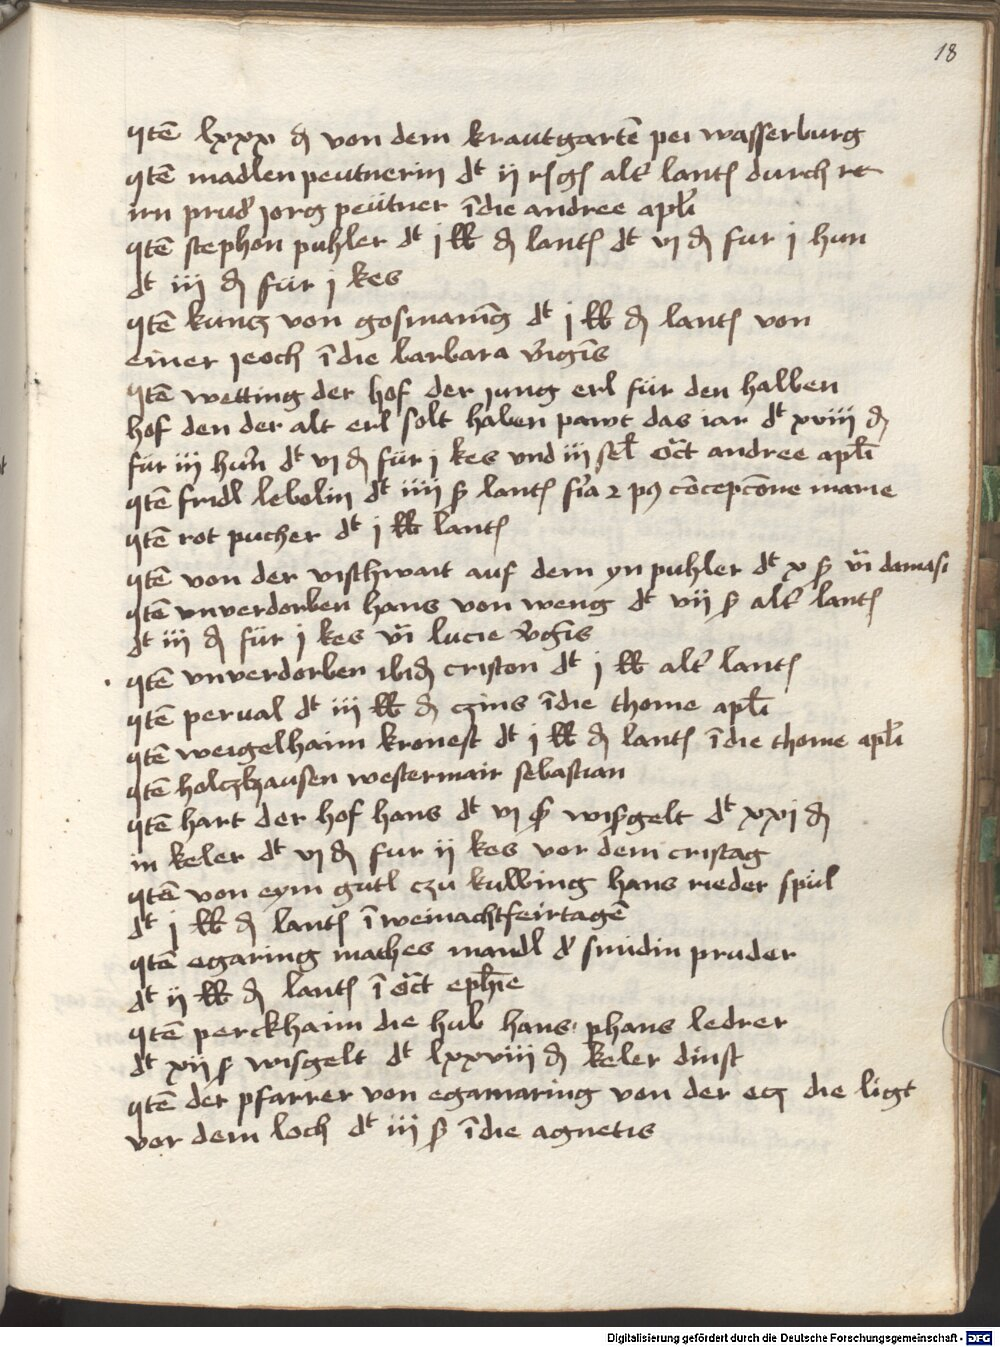 18
qtē lxxx ₰ von dem krautgartē pei wasserburg
qtē madlen peutnerin dt ij alt lant durch
irn prud jorg peütner ī die andree apli
qtē stephon puhler dt j lb ₰ lant dt vj ₰ fur j hun
dt iij ₰ für j kes
qtē kuncz von gosmaning dt j lb ₰ lant von
einer jeoch ī die barbara v̄gīs
qtē wetting der hof der jung erl für den halben
hof den der alt erl solt haben pawt das iar dt xviij ₰
für iij hun̄ dt vj ₰ für j kes vnd iij oct andree apli
qtē fridl lebolin dt iiij ß lant fīa 2 p9 cōcepcōne marie
qtē rot pucher dt j lb lant
qtē von der vischwait auf dem yn puhler dt x ß damasi
qtē vnverdorben hans von weng dt vij ß alt lant
dt iij ₰ für j kes lucie v̄gīs
qtē vnverdorben ibid criston dt j lb alt lant
qtē perual dt iij lb ₰ czins ī die thome apli
qtē weigelhaim kronest dt j lb ₰ lant ī die thome apli
qtē holczhausen westermair sebastian
qtē hart der hof hans dt vj ß wisgelt dt xxj ₰
in keler dt vj ₰ fur ij kes vor dem cristag
qtē von eym gutl czu kulbing hans rieder spül
dt j lb ₰ lant ī weinachtfeirtagē
qtē egaring mathes mandl d smidin pruder
dt ij lb ₰ lant ī oct ephie
qtē perckhaim die hub hans phans ledrer
dt xij ß wisgelt dt lxxviij ₰ keler dinst
qtē der pfarrer von egamaring von der ecz die ligt
vor dem loch dt iij ß ī die agnetis
Digitalisierung gefördert durch die Deutsche Forschungsgemeinschaft - DFG